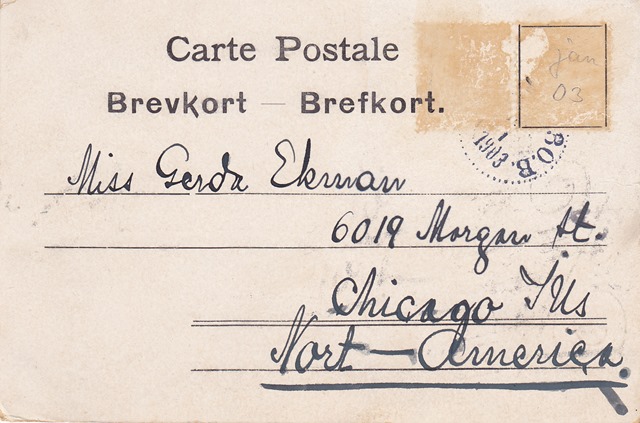 Carte Postale
Brevkort — Brefkort.
jan
03
Miss Gerda Ekman
6019 Morgan St.
Chicago Ills
Nort — America.